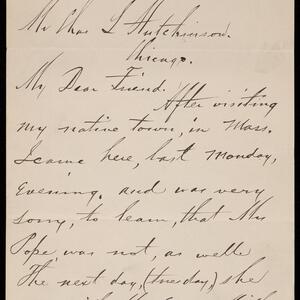 Mr Chas L Hutchinson.
Chicago.
My Dear Friend.
After visiting
my native town, in Mass.
I came here, last Monday,
Evening, and was very
sorry, to learn, that Mrs
Pope, was not, as well.
The next day, (tuesday), she